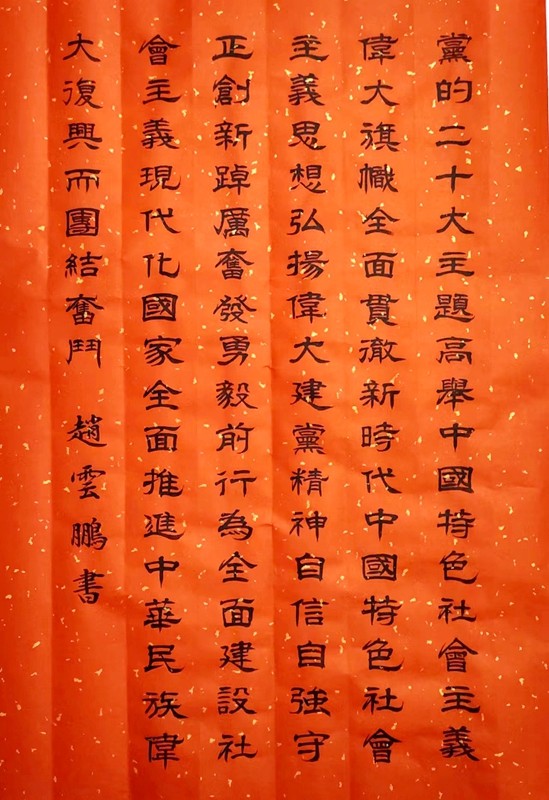 黨的二十大主題高舉中國特色社會主義
偉大旗幟全面貫徹新時代中國特色社會
主義思想弘揚偉大建黨精神自信自強守
正創新踔厲奮發勇毅前行為全面建設社
會主義現代化國家全面推進中華民族偉
大復興而團結奮鬥 趙雲鵬書